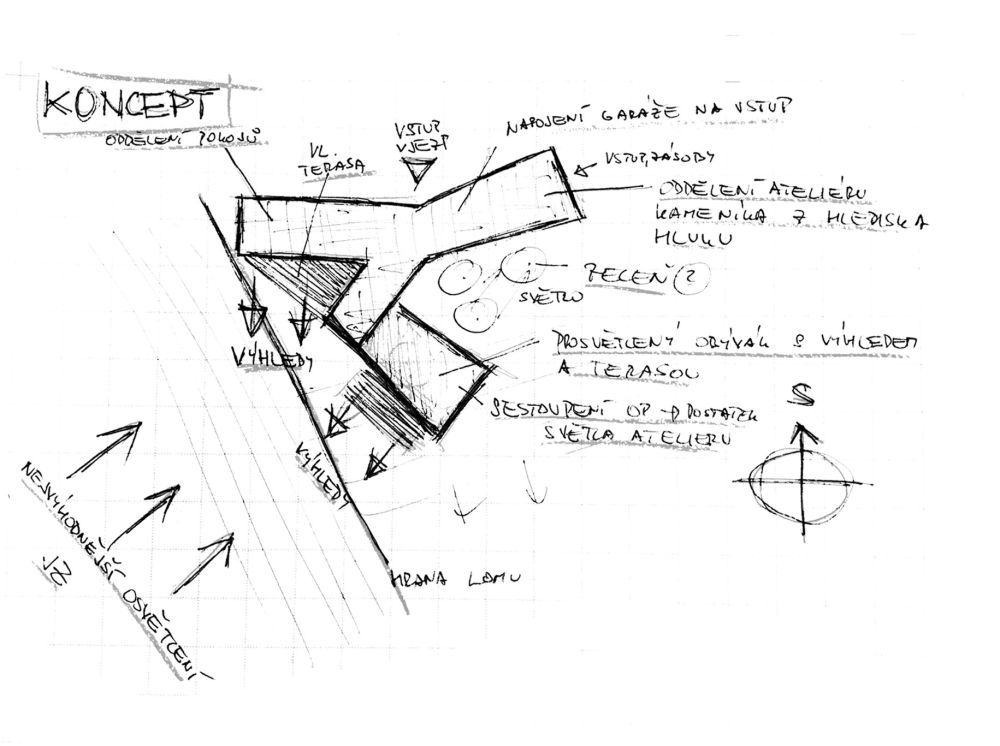 KONCEPT
ODDĚLENÍ POKOJŮ
VL.
TERASA
VSTUP
VJEZD
NAPOJENÍ GARÁŽE NA VSTUP
VSTUP, ZÁSOBY
ODDĚLENÍ ATELIÉRU
KAMENÍKA Z HLEDISKA
HLUKU
ZELEŇ (?)
SVĚTLO
VÝHLEDY
PROSVĚTLENÝ OBÝVÁK S VÝHLEDEM
A TERASOU
SESTOUPENÍ OP → DOSTATEK
SVĚTLA ATELIERU
S
VÝHLEDY
NEJVÝHODNĚJŠÍ OSVĚTLENÍ
JZ.
HRANA LOMU